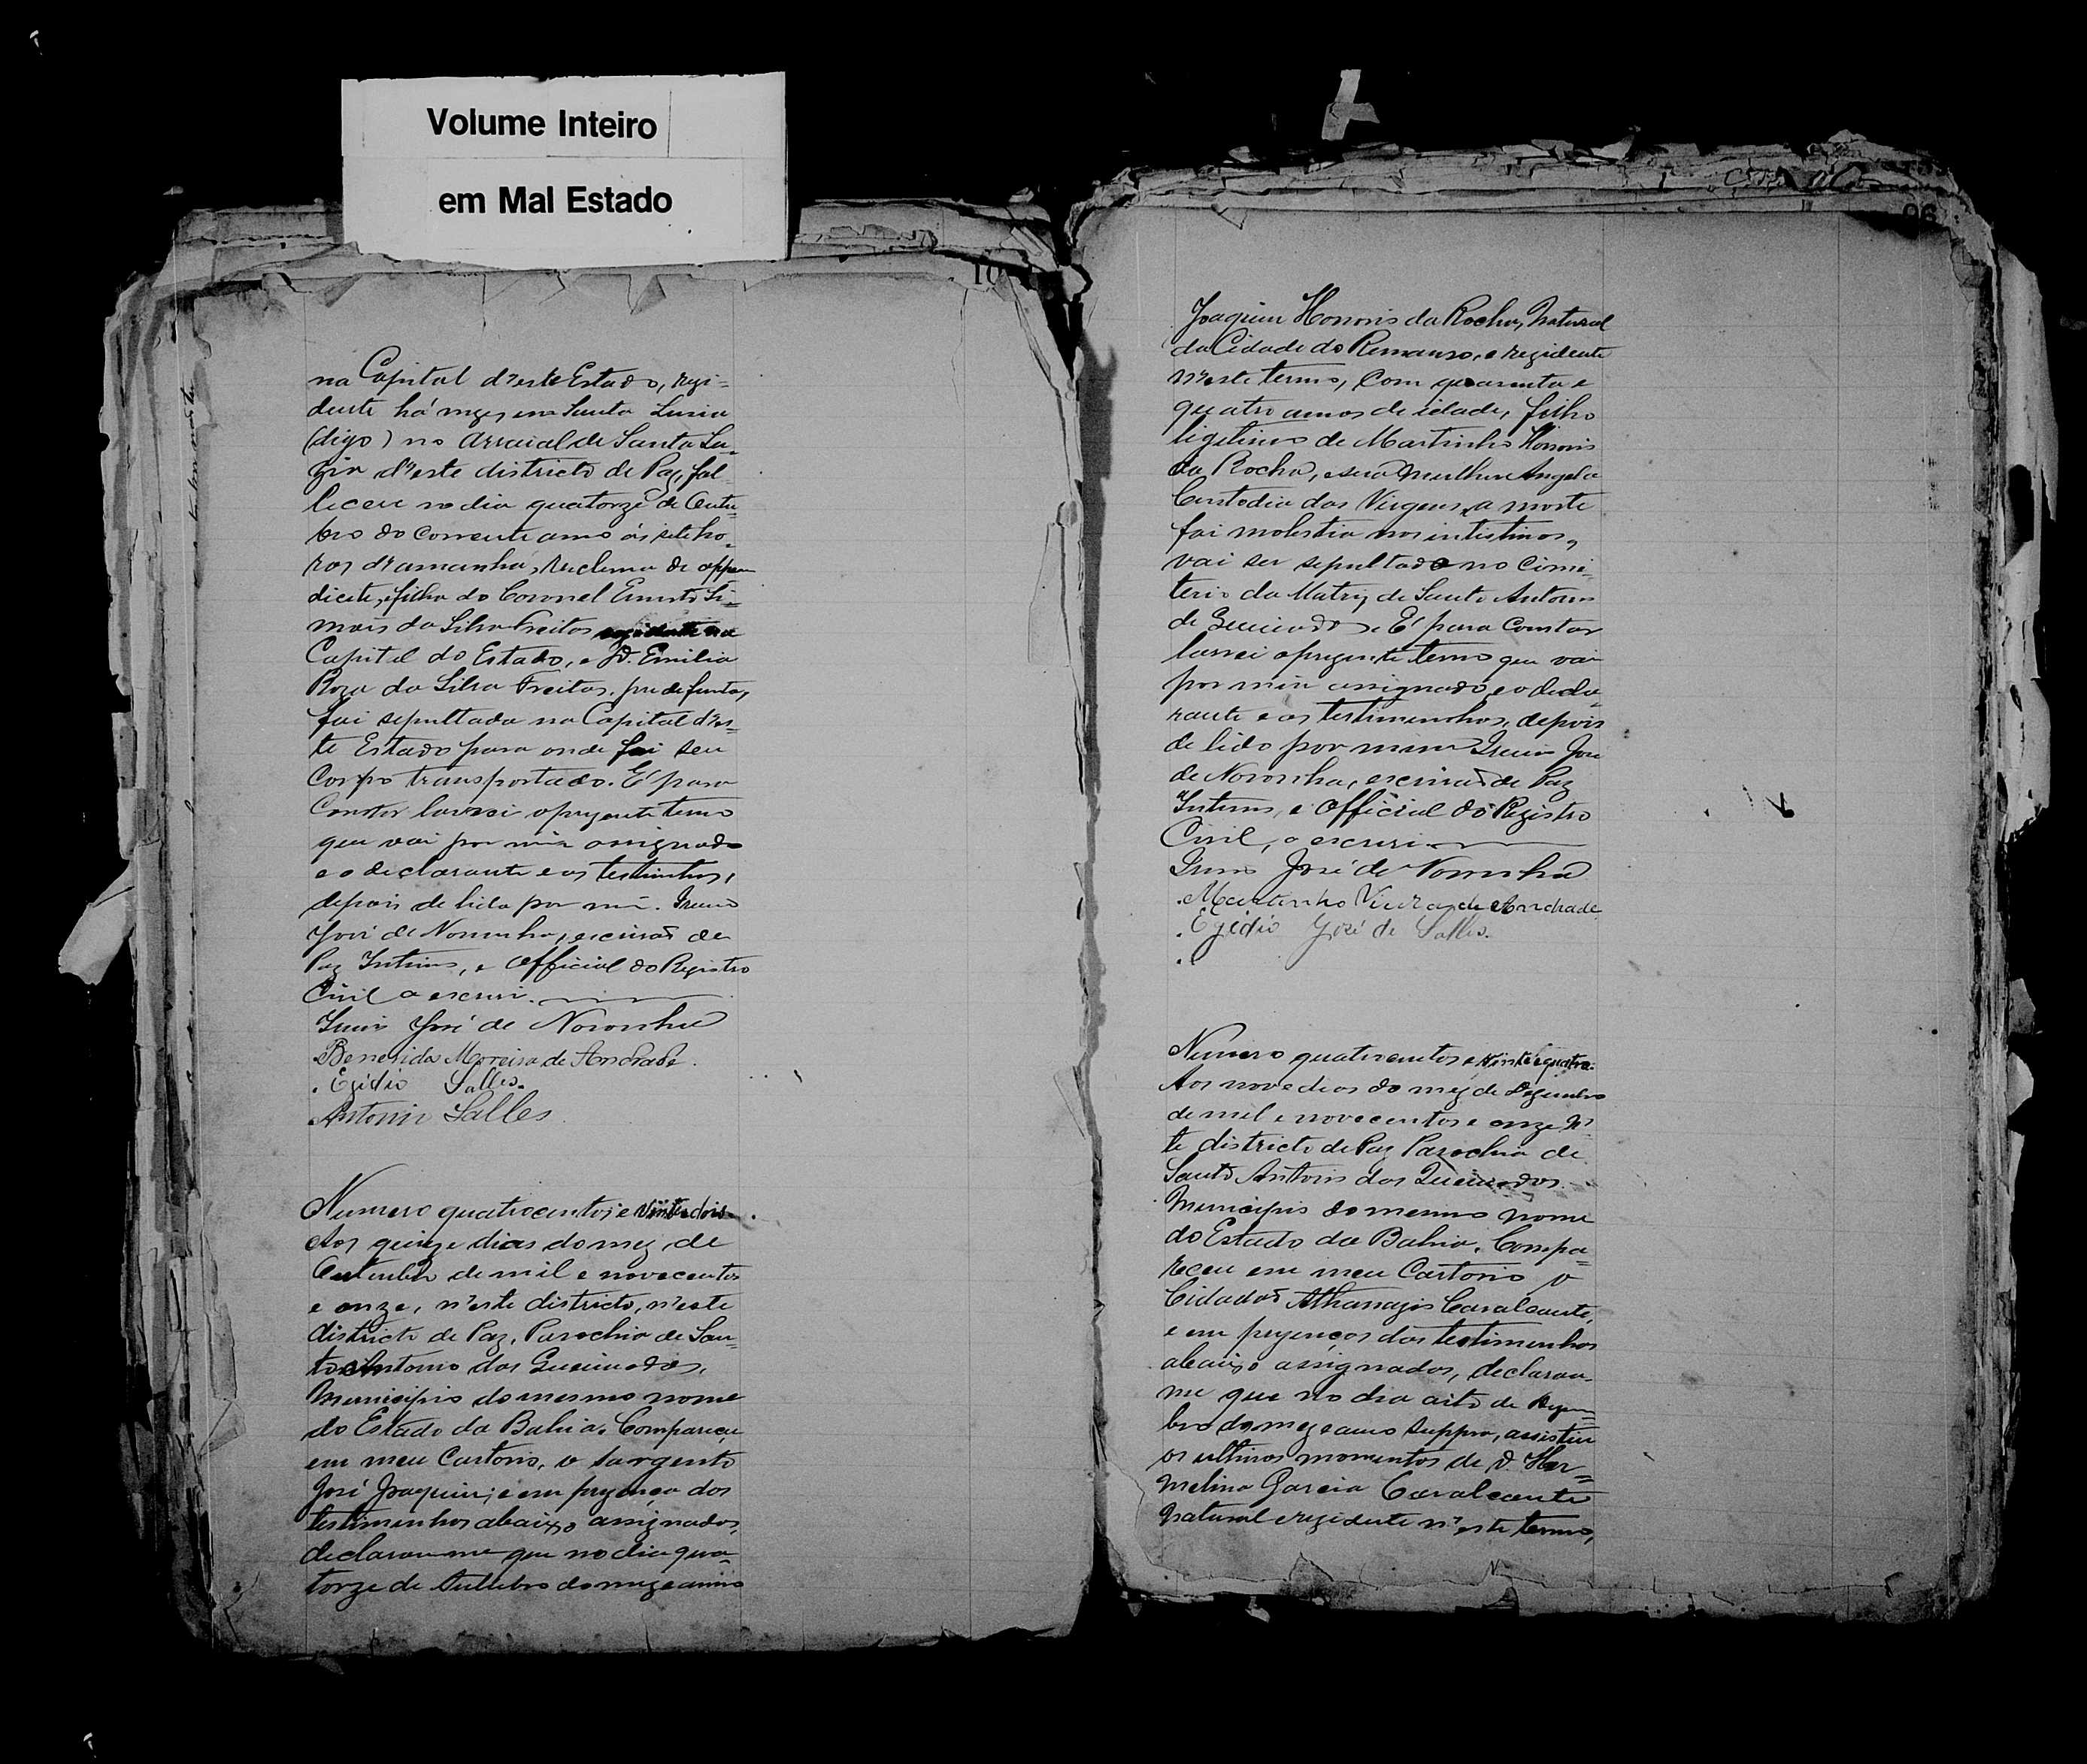 Volume Inteiro
em Mal Estado
10
na Capital d'este Estado, rezi=
dente há mezes em Santa Luzia
(digo) no Arraial de Santa Lu=
zia d'este districto de Paz, fal
leceu no dia quatorze de Outu=
bro do corrente anno ás sete ho=
ras da manhã, de appen
dicite, filha do Coronel Ernesto Si=
mões da Silva Freitas rezidente na
Capital do Estado, e D. Emilia
Roza da Silva Freitas, já defunta,
foi sepultada na Capital d'es=
te Estado para onde foi seu
Corpo transportado. E' para
Constar lavrei o prezente termo
que vai por mim assignado
e o declarante e as testimunhas,
depois de lido por mim. Irineo
José de Noronha, escrivaõ de
Paz Interino, e Official do Registro
Civil o escrevi.
Irineo José de Noronha
Benedido Moreira de Andrade.
Egidio Salles.
Antonio Salles
Numero quatrocentos e vinte e dois.
Aos quinze dias do mez de
Outubro de mil e novecentos
e onze, n'este districto, n'este
districto de Paz, Parochia de San=
to Antonio das Queimadas,
Municipio do mesmo nome
do Estado da Bahia. Compareceu
em meu Cartorio, o Sargento
José Joaquim; e em prezença das
testimunhas abaixo assignadas,
declarou-me que no dia qua=
torze de Outubro do mez e anno
96
Joaquim Honorio da Rocha, Natural
da Cidade do Remanso, e rezidente
n'este termo, Com quarenta e
quatro annos de idade, filho
ligitimo de Martinho Honorio
da Rocha, e sua mulher Angela
Custodia das Virgens, a morte
foi molestia nos intistinos,
vai ser sepultado no Cimi=
terio da Matriz de Santo Antonio
de Queimadas. E' para Constar
lavrei o prezente termo que vai
por mim assignado, e o decla=
rante e as testimunhas, depois
de lido por mim Irineo José
de Noronha, escrivaõ de Paz
Interino, e Official do Registro
Civil, o escrevi
Irineo José de Noronha
Martinho Vieira de Andrade
Egidio José de Salles.
Numero quatrocentos e vinte e quatro.
Aos nove dias do mez de Dezembro
de mil e novecentos e onze n'es
te districto de Paz Parochia de
Santo Antonio das Queimadas.
Municipio do mesmo nome
do Estado da Bahia. Compa=
receu em meu Cartorio o
Cidadaõ Athanazio Cavalcante,
e em prezença das testimunhas
abaixo assignadas, declarou-
me que no dia oito de Dezem=
bro do mez e anno suppra, assistiu
os ultimos momentos de D. Her=
melina Garcia Cavalcante
Natural e rezidente n'este termo,